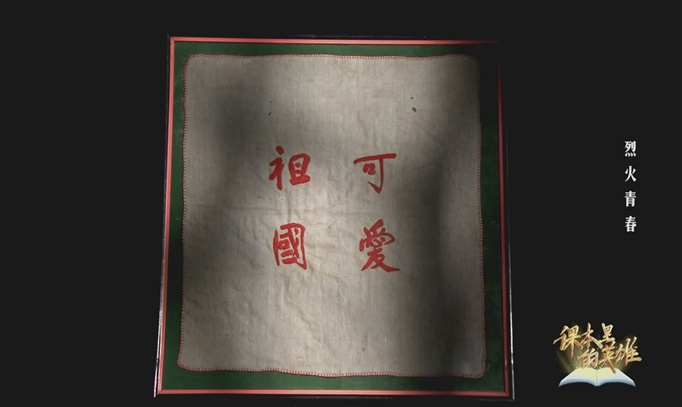 可愛
祖國
烈火青春
课本里的英雄